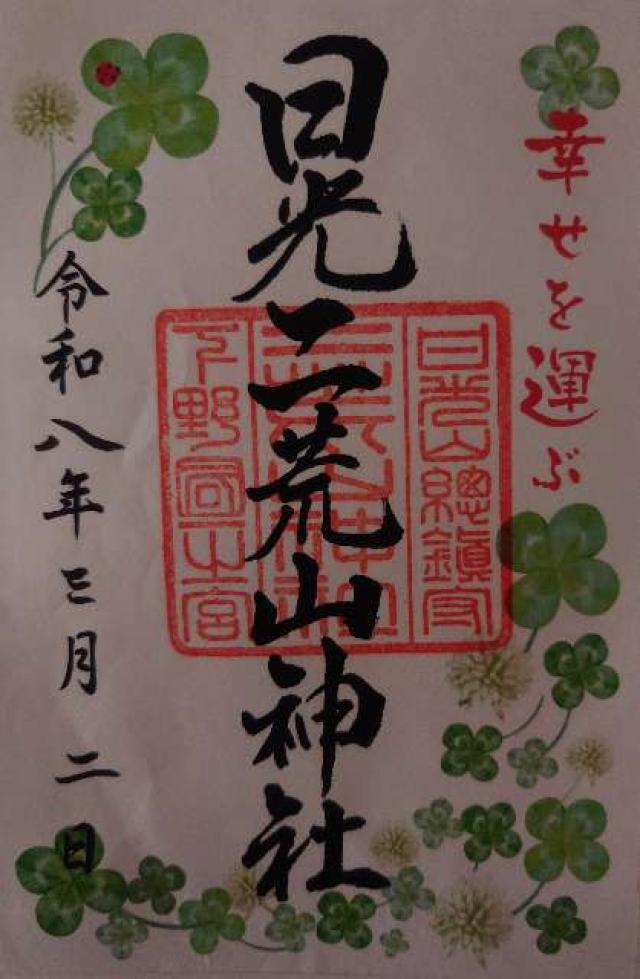 幸せを運ぶ
日光二荒山神社
日光山總鎮守
二荒山神社
下野国一宮
令和八年三月二日